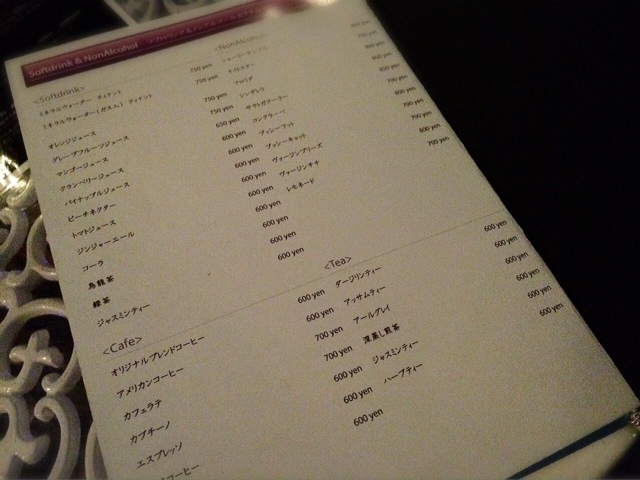 Softdrink & NonAlcohol ソフトドリンク & ノンアルコールカクテル
<Softdrink>
ミネラルウォーター ティナント 750 yen
ミネラルウォーター(ガス入) ティナント 750 yen
オレンジジュース 750 yen
グレープフルーツジュース 750 yen
マンゴージュース 650 yen
クランベリージュース 600 yen
パイナップルジュース 600 yen
ピーチネクター 600 yen
トマトジュース 600 yen
ジンジャーエール 600 yen
コーラ 600 yen
烏龍茶 600 yen
緑茶 600 yen
ジャスミンティー
<NonAlcohol>
シャーリーテンプル
フロリダ
シンデレラ
サラトガクーラー
コンクラーベ
プッシーフット
プッシーキャット
ヴァージンブリーズ
ヴァージンチチ
レモネード
800 yen
700 yen
700 yen
800 yen
700 yen
<Cafe>
オリジナルブレンドコーヒー 600 yen
アメリカンコーヒー 600 yen
カフェラテ 700 yen
カプチーノ 700 yen
エスプレッソ 600 yen
コーヒー 600 yen
600 yen
<Tea>
ダージリンティー 600 yen
アッサムティー 600 yen
アールグレイ 600 yen
深蒸し煎茶 600 yen
ジャスミンティー 600 yen
ハーブティー